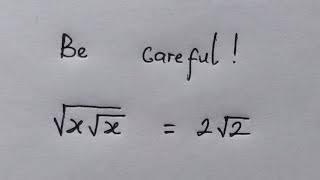 Be careful!
√(x√x) = 2√2